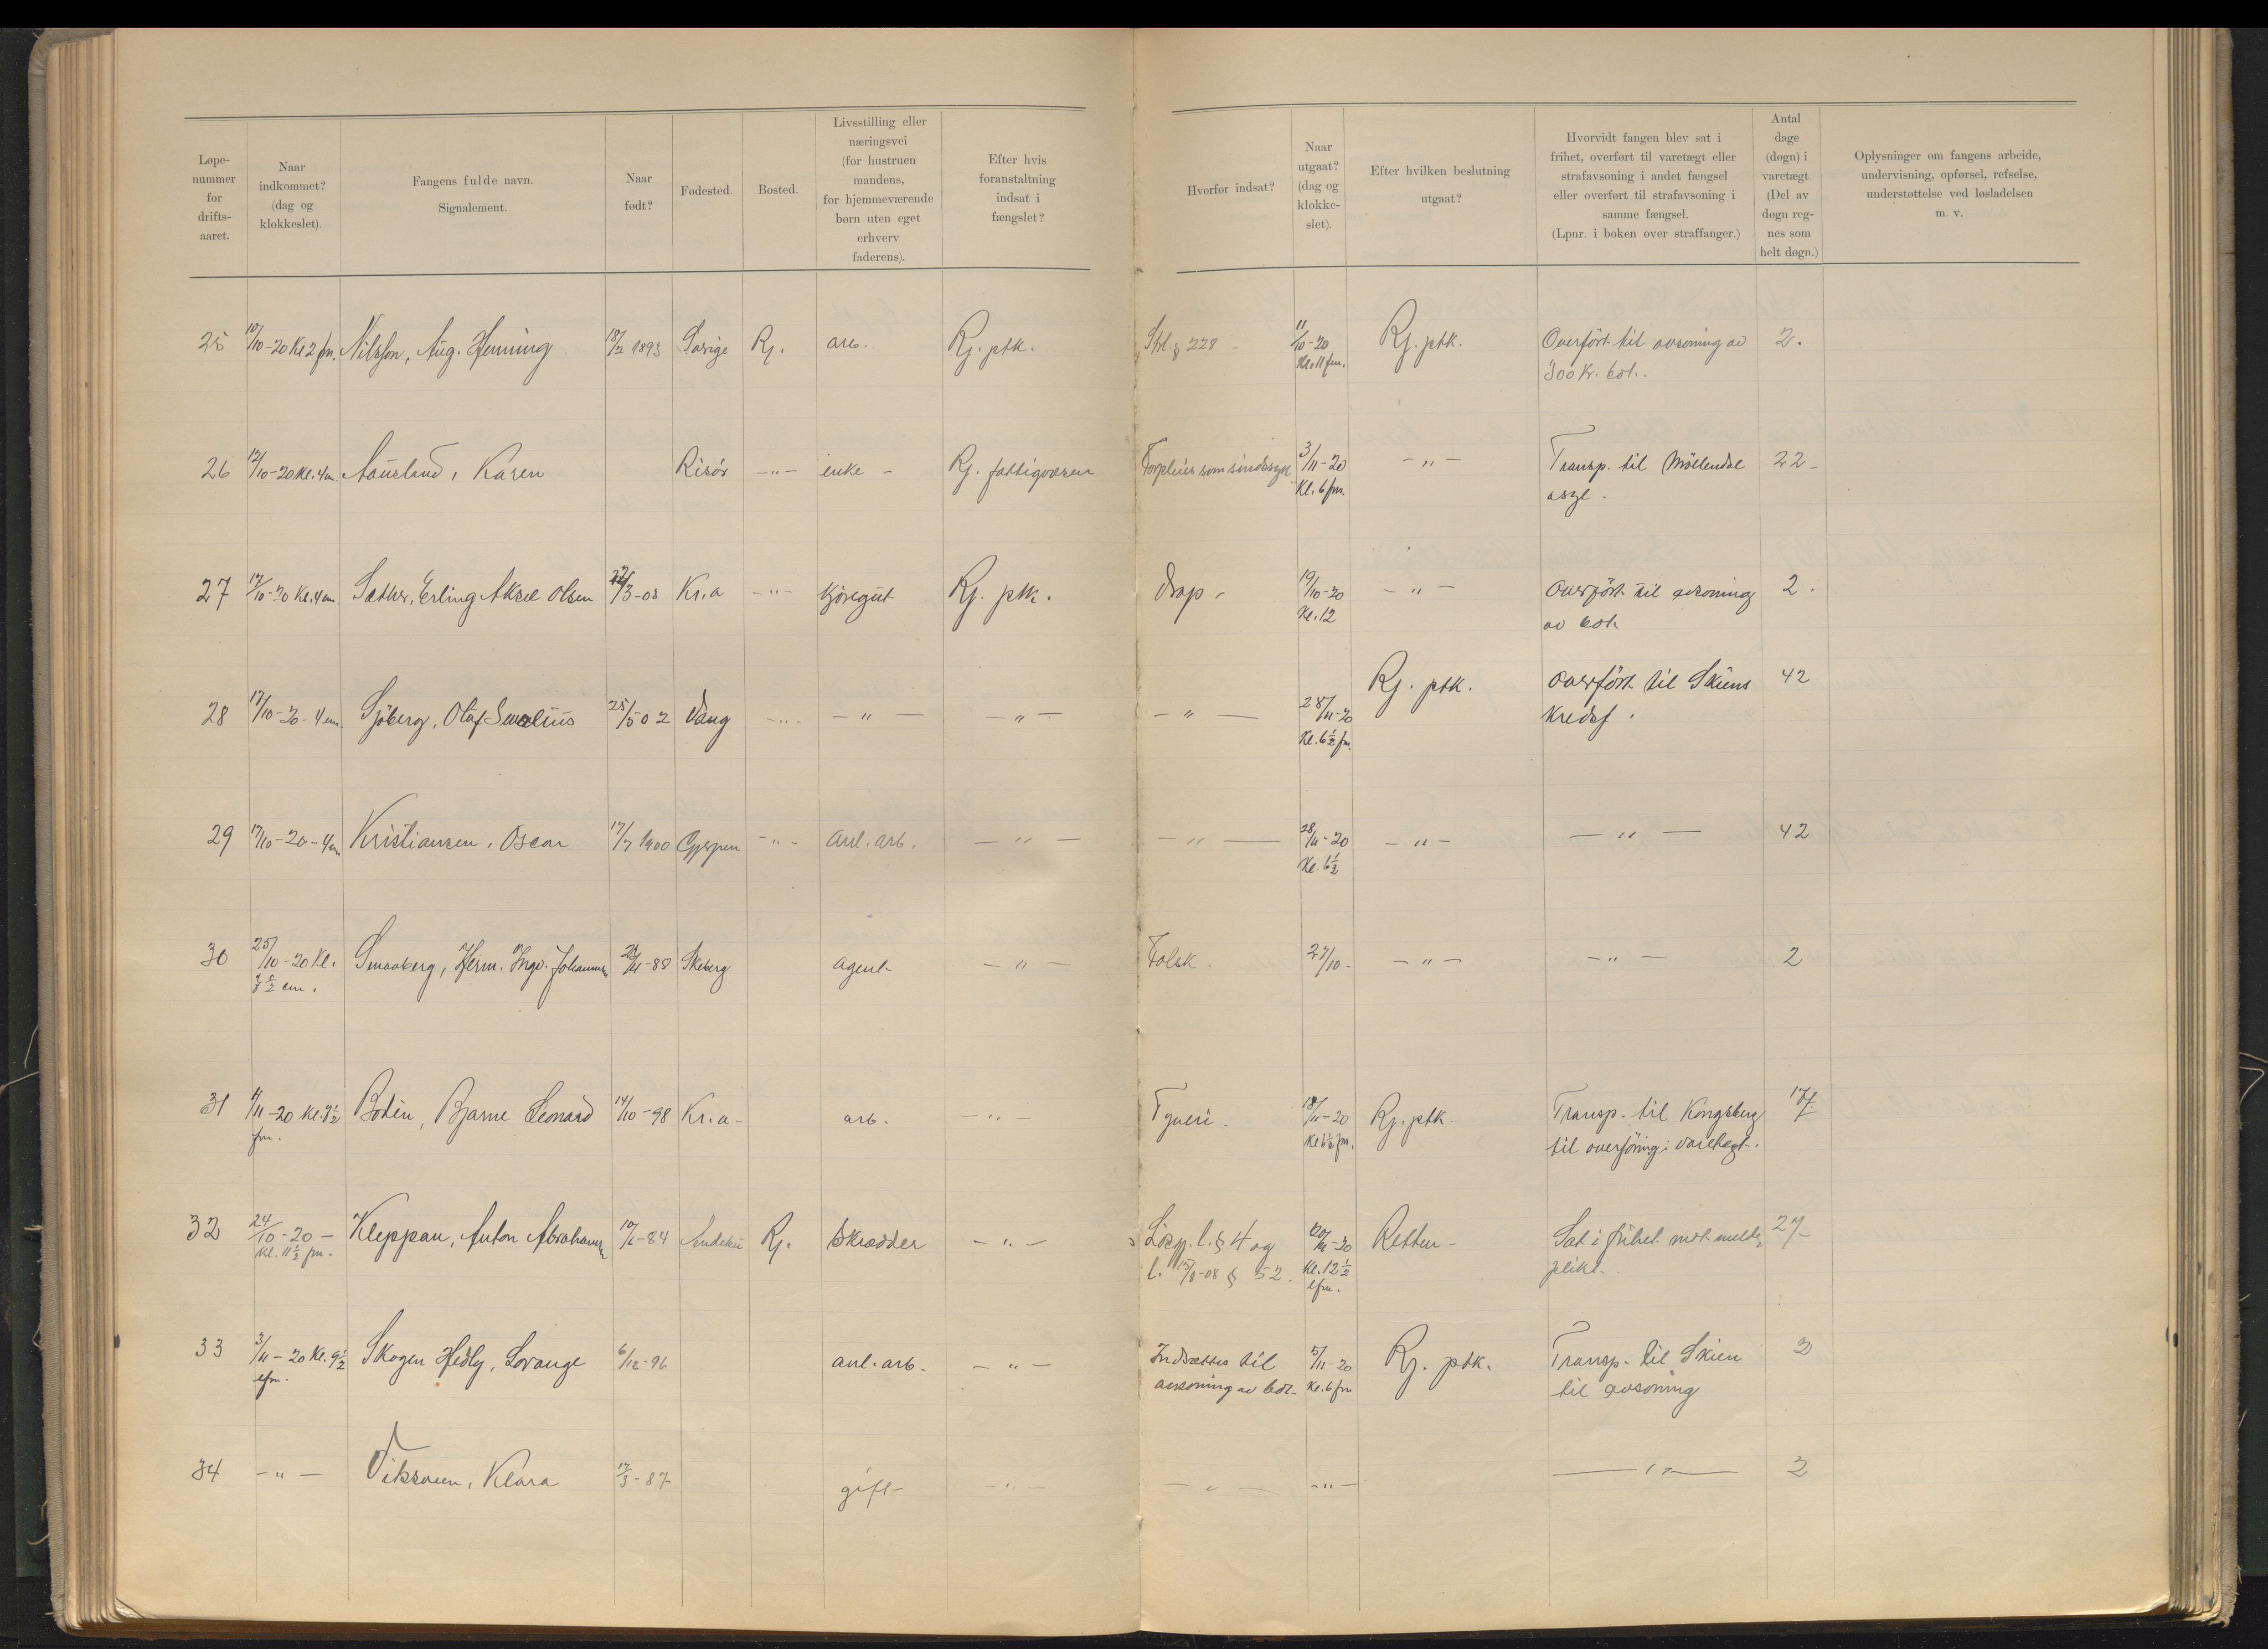 Løpe-
nummer
for
drifts-
aaret.
Naar
indkommet?
(dag og
klokkeslet).
Fangens fulde navn.
Signalement.
Naar
født?
Fødested.
Bosted.
Livsstilling eller
næringsvei
(for hustruen
mandens,
for hjemmeværende
børn uten eget
erhverv
faderens).
Efter hvis
foranstaltning
indsat i
fængslet?
Hvorfor indsat?
Naar
utgaat?
(dag og
klokke-
slet).
Efter hvilken beslutning
utgaat?
Hvorvidt fangen blev sat i
frihet, overført til varetægt eller
strafavsoning i andet fængsel
eller overført til strafavsoning i
samme fængsel.
(Lpnr. i boken over straffanger.)
Antal
dage
(døgn) i
varetægt
(Del av
døgn reg-
nes som
helt døgn.)
Oplysninger om fangens arbeide,
undervisning, opførsel, refselse,
understøttelse ved løsladelsen
m. v.
25 10/10-20 Kl 2 fm. Nilsson, Aug. Henning 18/2 1893 Sverige Rj. arb. Rj. ptk. Strl § 228 - 11/10-20 Rj. ptk. Overført til avsoning av 2.
Kl. 11 fm. 300 Kr. bot.
26 12/10-20 Kl. 4 em. Karen Risör -"- enke - Rj. fattigvæsen som sindssyk 3/11-20 -"- Transp. til Möllendal 22-
Kl. 6 fm. asyl.
27 17/10-20 Kl. 4 em Sæther, Erling Aksel Olsen /3-03 Kr.a -"- kjöregut Rj. ptk. Drap - 19/10-20 -"- Overfört til avsoning 2.
Kl. 12 av bot
28 17/10-20-4 em. Sjöberg, Olaf 25/5 02 Vang -"- -"- -"- -"- 28/11-20 Rj. ptk. Overfört til Skiens 42
Kl. 6½ fm. Kredsf.
29 17/10-20-4 em Kristiansen, Oscar 17/7 1900 Gjerpen -"- anl. arb. -"- -"- 28/11-20 -"- -"- 42
Kl. 6½
30 25/10-20 Kl. Smaaberg, Herm. Ingv. Johannes /11-88 Skeberg agent -"- Falsk. 27/10- -"- -"- 2
½ em.
31 /11-20 Kl. ½ Bodin, Bjarne Leonard 14/10-98 Kr.a- arb. -"- Tyveri - 18/11-20 Rj. ptk. Transp. til Kongsberg 17
fm. Kl ½ fm. til overföring i varetegt.
32 24/10-20 - Kleppan, Anton Abrahamsen /6-84 Rj. Skrædder -"- Lösg. l. § 4 og 20/11-20 Retten - Sat i frihet mot melde 27-
Kl. 11½ fm. l. 15/8-08 § 52. Kl. 12½ plikt.
efm.
33 3/11-20 Kl. 9½ Skogen Hedly, Lorange 6/12-96 anl. arb. -"- Indsættes til 5/11-20 Rj. ptk. Transp. til Skien 3
efm. avsoning av bot- Kl. 6 fm til avsoning
34 -"- Klara 17/3-87 gift- -"- -"- -"- -"- 3